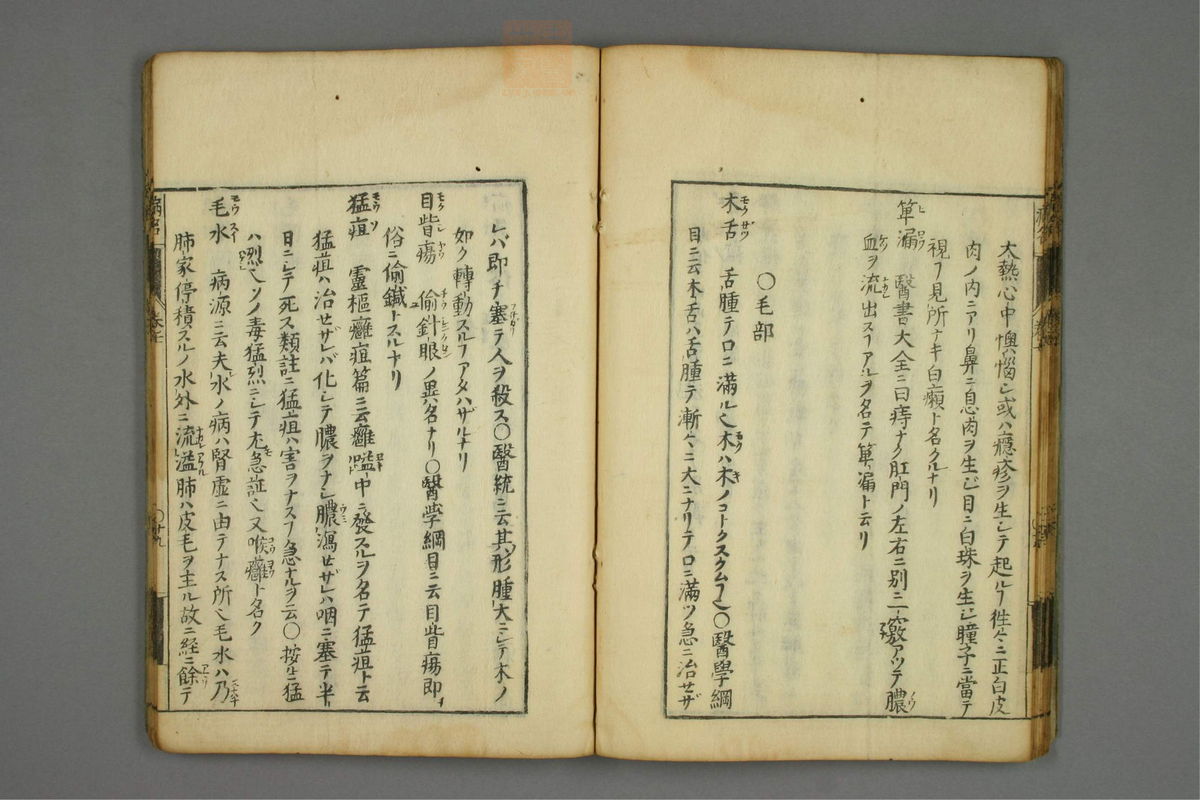 大熱心中懊惱シ或ハ癮疹ヲ生シテ起ルヿ徃々ニ正白皮
肉ノ内ニアリ鼻ニ息肉ヲ生シ目ニ白珠ヲ生シ瞳子ニ當テ
視ヿ見所ナキ白癩ト名クルナリ
箄漏 醫書大全ニ曰痔ナク肛門ノ左右ニ别ニ一竅アツテ膿
血ヲ流出スヿアルヲ名テ箄漏ト云リ
〇毛部
木舌 舌腫テ口ニ滿ル也木ハ木ノコトクスクム也〇醫學綱
目ニ云木舌ハ舌腫テ漸々ニ大ニナリテ口ニ滿ツ急ニ治セザ
レバ即チ塞テ人ヲ殺ス〇醫統ニ云其形腫大ニシテ木ノ
如ク轉動スルヿアタハザルナリ
目眥瘍 偷針眼ノ異名ナリ〇醫学綱目ニ云目眥瘍即
俗ニ偷鍼トスルナリ
猛疽 靈樞癰疽篇ニ云癰嗌中ニ發スルヲ名テ猛疽ト云
猛疽ハ治セザレバ化シテ膿ヲナシ膿瀉セザレハ咽ニ塞テ半
日ニシテ死ス類註ニ猛疽ハ害ヲナスヿ急ナルヲ云〇按ニ猛
ハ烈也ソノ毒猛烈ニシテ尤急証也又喉癰ト名ク
毛水 病源ニ云夫水ノ病ハ腎虚ニ由テナス所也毛水ハ乃
肺家停積スルノ水外ニ流溢肺ハ皮毛ヲ主ル故ニ経ニ餘テ